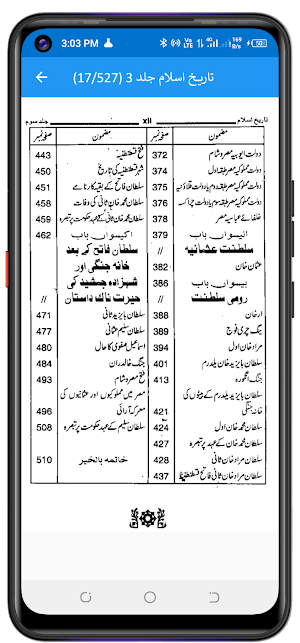 3:03 PM
169 B/s
50
تاریخ اسلام جلد 3 (17/527)
تاریخ اسلام xii جلد سوم
مضمون صفحہ نمبر
دولت ایوبیہ مصر و شام 372
دولت مملوکیہ مصر طبقہ اول 374
دولت مملوکیہ مصر طبقہ دوم یا دولت قلاؤنیہ 375
دولت مملوکیہ مصر طبقہ سوم یا دولت چراکسہ 376
خلفائے عباسیہ مصر 379
اکیسواں باب
سلطنت عثمانیہ //
عثمان خان 382
بیسواں باب 386
رومی سلطنت //
ارخان 388
ینگ چری فوج 389
مراد خان اول 394
سلطان بایزید خان یلدرم 401
جنگ انگورہ 413
سلطان بایزید یلدرم کے بیٹوں کی
خانہ جنگی 421
سلطان محمد خان اول 424
سلطان محمد خان کے عہد حکومت پر تبصرہ 427
سلطان مراد خان ثانی 428
سلطان مراد خان ثانی فاتح قسطنطنیہ 437
مضمون صفحہ نمبر
فتح قسطنطنیہ 443
شہر قسطنطنیہ کی تاریخ 450
سلطان فاتح کے بقیہ کارنامے 451
سلطان محمد خان ثانی کی وفات 458
سلطان محمد خان ثانی کے عہد حکومت پر تبصرہ 459
اکیسواں باب 462
سلطان فاتح کے بعد
خانہ جنگی اور
شہزادہ جمشید کی
حیرت ناک داستان //
سلطان بایزید ثانی 471
سلطان سلیم عثمانی 477
اسماعیل صفوی کا حال 480
جنگ خالدران 484
فتح مصر و شام 493
مصر میں مملوکیوں اور عثمانیوں کی
معرکہ آرائی 496
سلطان سلیم کے عہد حکومت پر تبصرہ 508
خاتمہ بالخیر 510